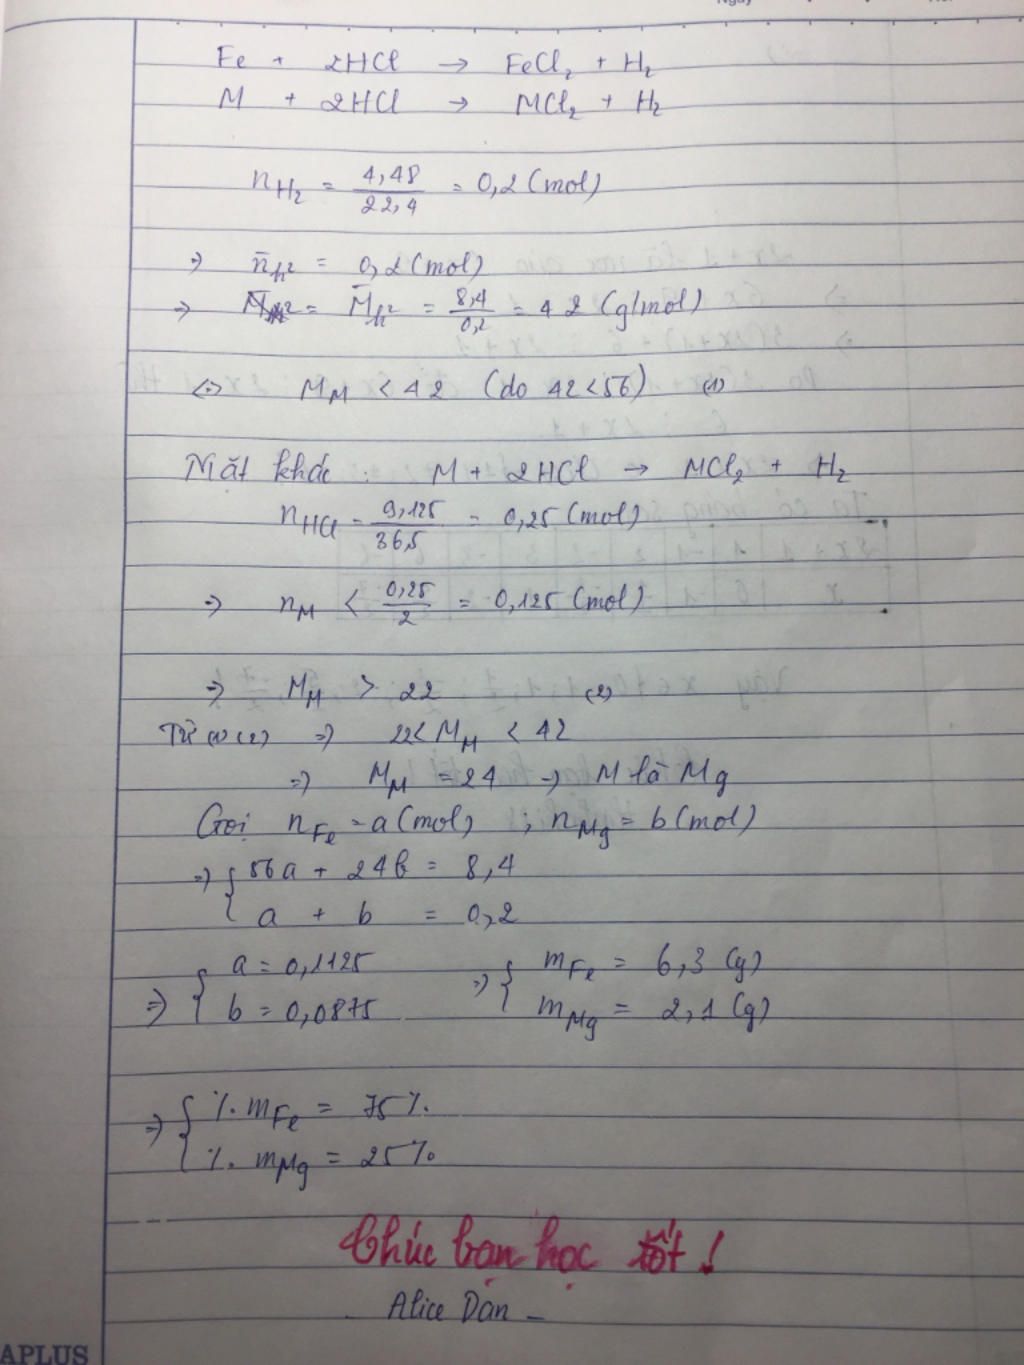 Fe + 2HCl → FeCl₂ + H₂
M + 2HCl → MCl₂ + H₂
n H₂ = 4,48/22,4 = 0,2 (mol)
⇒ n̄ h² = 0,2 (mol)
⇒ = M̄ h² = 8,4/0,2 = 42 (g/mol)
⇔ M_M < 42 (do 42 < 56) (1)
Mặt khác : M + 2HCl → MCl₂ + H₂
n HCl = 9,125/36,5 = 0,25 (mol)
⇒ n_M < 0,25/2 = 0,125 (mol)
⇒ M_M > 22 (2)
Từ (1)(2) ⇒ 22 < M_M < 42
⇒ M_M = 24 → M là Mg
Gọi n Fe = a (mol) ; n Mg = b (mol)
⇒ { 56a + 24b = 8,4
a + b = 0,2
⇒ { a = 0,1125 ⇒ { m Fe = 6,3 (g)
b = 0,0875 m Mg = 2,1 (g)
⇒ { %. m Fe = 75%.
%. m Mg = 25%
Chúc bạn học tốt !
- Alice Dan -
APLUS